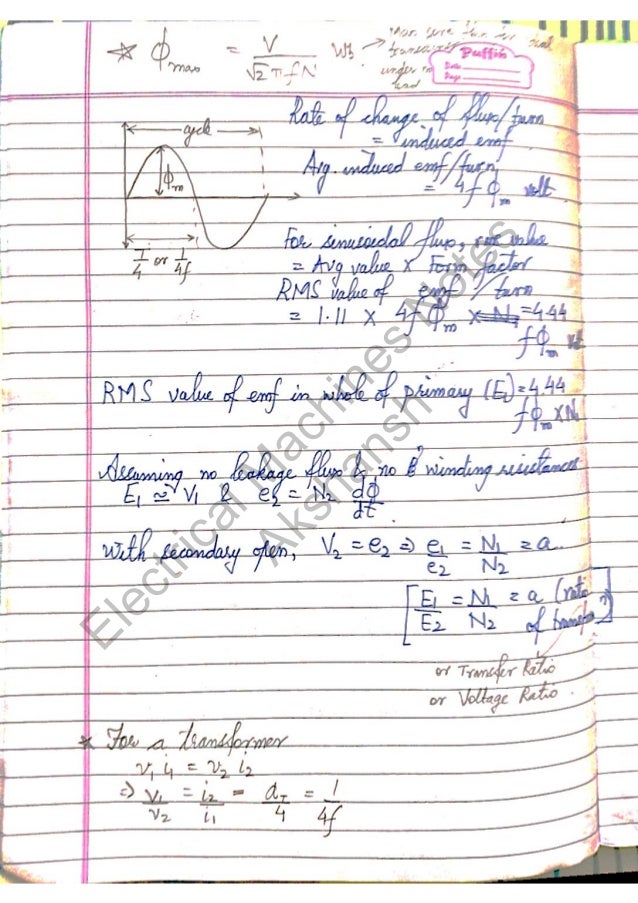 ☆ Φmax = V / √2 π f N Wb →
transformer
under no
load
Puffin
Date
Page
cycle
Φm
T/4 or 1/4f
Rate of change of flux/turn
= induced emf
Avg. induced emf/turn
= 4f Φm volt
For sinusoidal flux, rms value
= Avg value × Form factor
RMS value of emf / turn
= 1.11 × 4f Φm × N1 = 4.44
f Φm
RMS value of emf in whole of primary (E1) = 4.44
f Φm × N1
Assuming no leakage flux & no winding resistances
E1 ≅ V1 & e2 = N2 dΦ/dt
With secondary open, V2 = e2 ⇒ e1/e2 = N1/N2 = a
[E1/E2 = N1/N2 = a (ratio
of transfo
or Transfer Ratio
or Voltage Ratio
* For a transformer
v1 i1 = v2 i2
⇒ v1/v2 = i2/i1 = /4 = 1/4f
Electrical Machines Notes
Akshansh